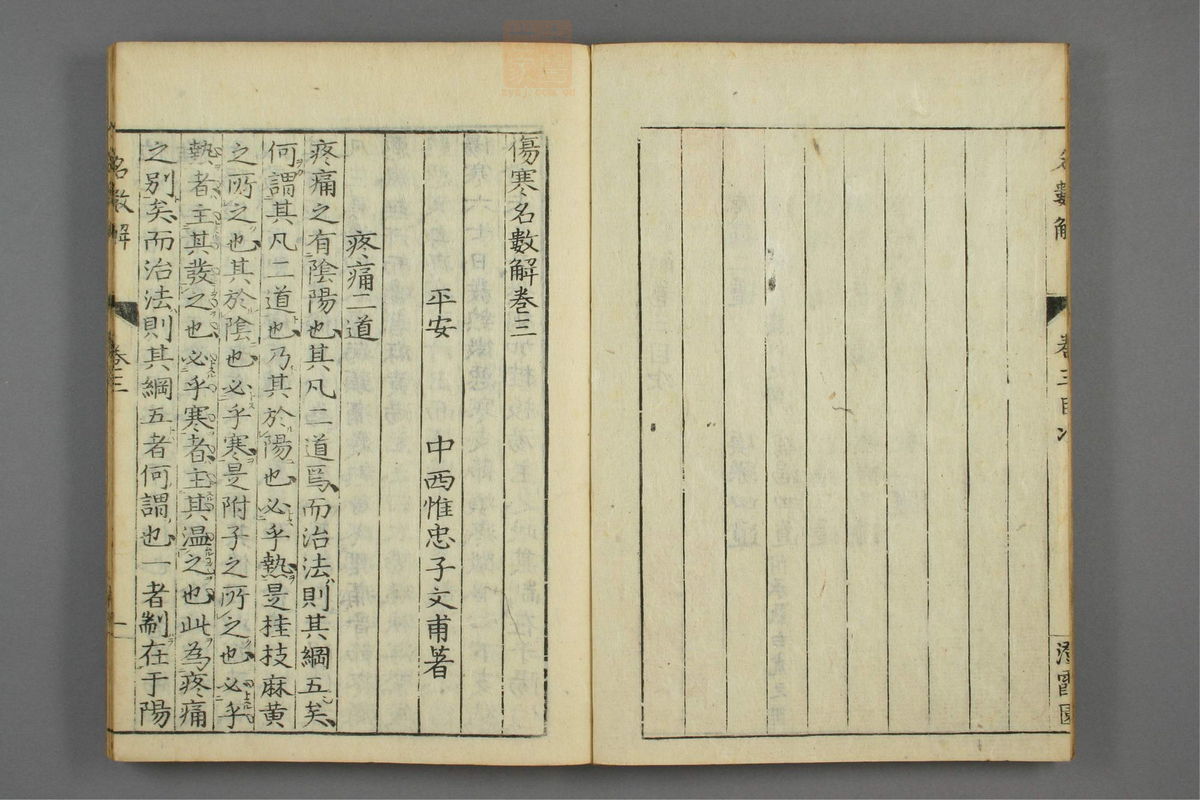 名數解
卷三目次
澄霞園
傷寒名數解卷三
平安 中西惟忠子文甫著
疼痛二道
疼痛之有陰陽也其凡二道焉而治法則其綱五矣
何謂其凡二道也乃其於陽也必乎熱是桂枝麻黄
之所之也其於陰也必乎寒是附子之所之也必乎
熱者主其發之也必乎寒者主其温之也此為疼痛
之别矣而治法則其綱五者何謂也一者制在于陽
名數解
卷三
一